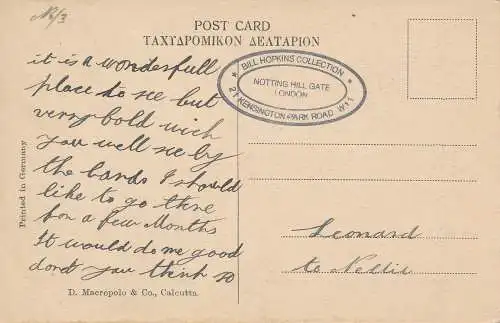 No/3
POST CARD
ΤΑΧΥΔΡΟΜΙΚΟΝ ΔΕΛΤΑΡΙΟΝ
it is a wonderfull
place to see but
verry bold wich
you well see by
the cards I should
like to go there
for a few Months
it would do me good
dont you think so
BILL HOPKINS COLLECTION
NOTTING HILL GATE
LONDON
21 KENSINGTON PARK ROAD W11
Leonard
to Nellie
Printed in Germany
D. Macropolo & Co., Calcutta.